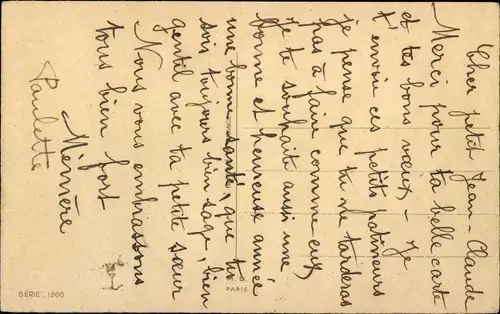 Cher petit Jean-Claude
Merci pour ta belle carte
et tes bons vœux - Je
t'envoie ces petits patineurs
je pense que tu ne tarderas
pas à faire comme eux,
Je te souhaite aussi une
bonne et heureuse année
une bonne santé, que tu
sois toujours bien sage, bien
gentil avec ta petite sœur
Nous vous embrassons
tous bien fort
Mémère
Paulette
SÉRIE. 1300
PARIS